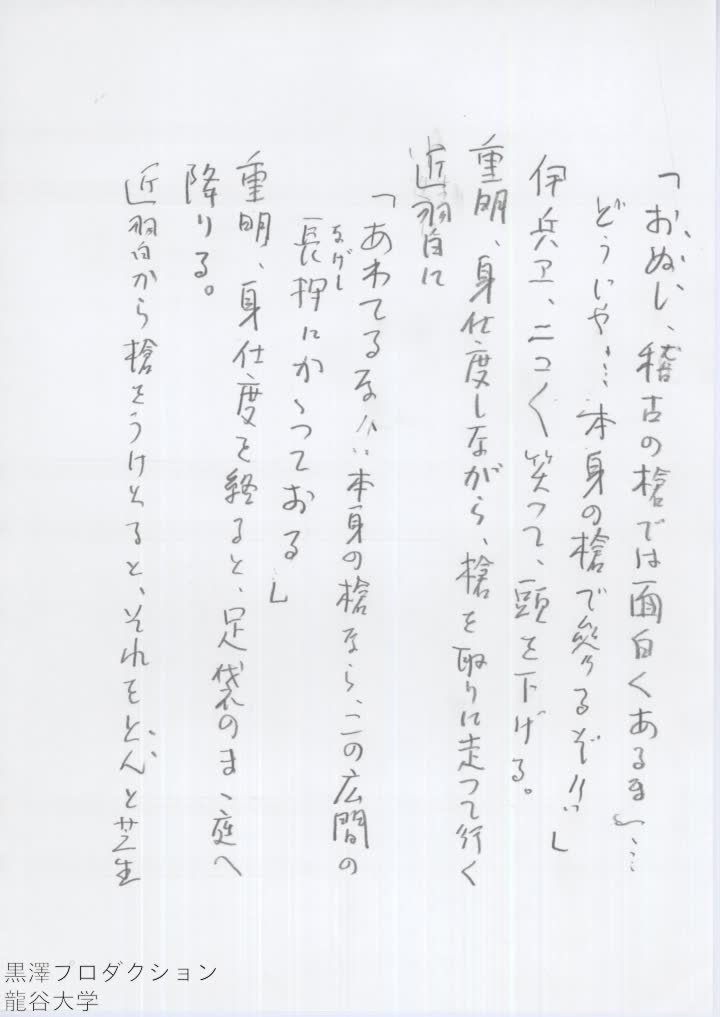 「おぬし、稽古の槍では面白くあるまい…
どうじゃ、…本身の槍で参るぞ!!」
伊兵ヱ、ニコ〱笑って、頭を下げる。
重明、身仕度しながら、槍を取りに走って行く
近習に
「あわてるな!!…本身の槍なら、この広間の
長押にかゝっておる」
なげし
重明、身仕度を終ると、足袋のまゝ庭へ
降りる。
近習から槍をうけとると、それをどんと芝生
黒澤プロダクション
龍谷大学